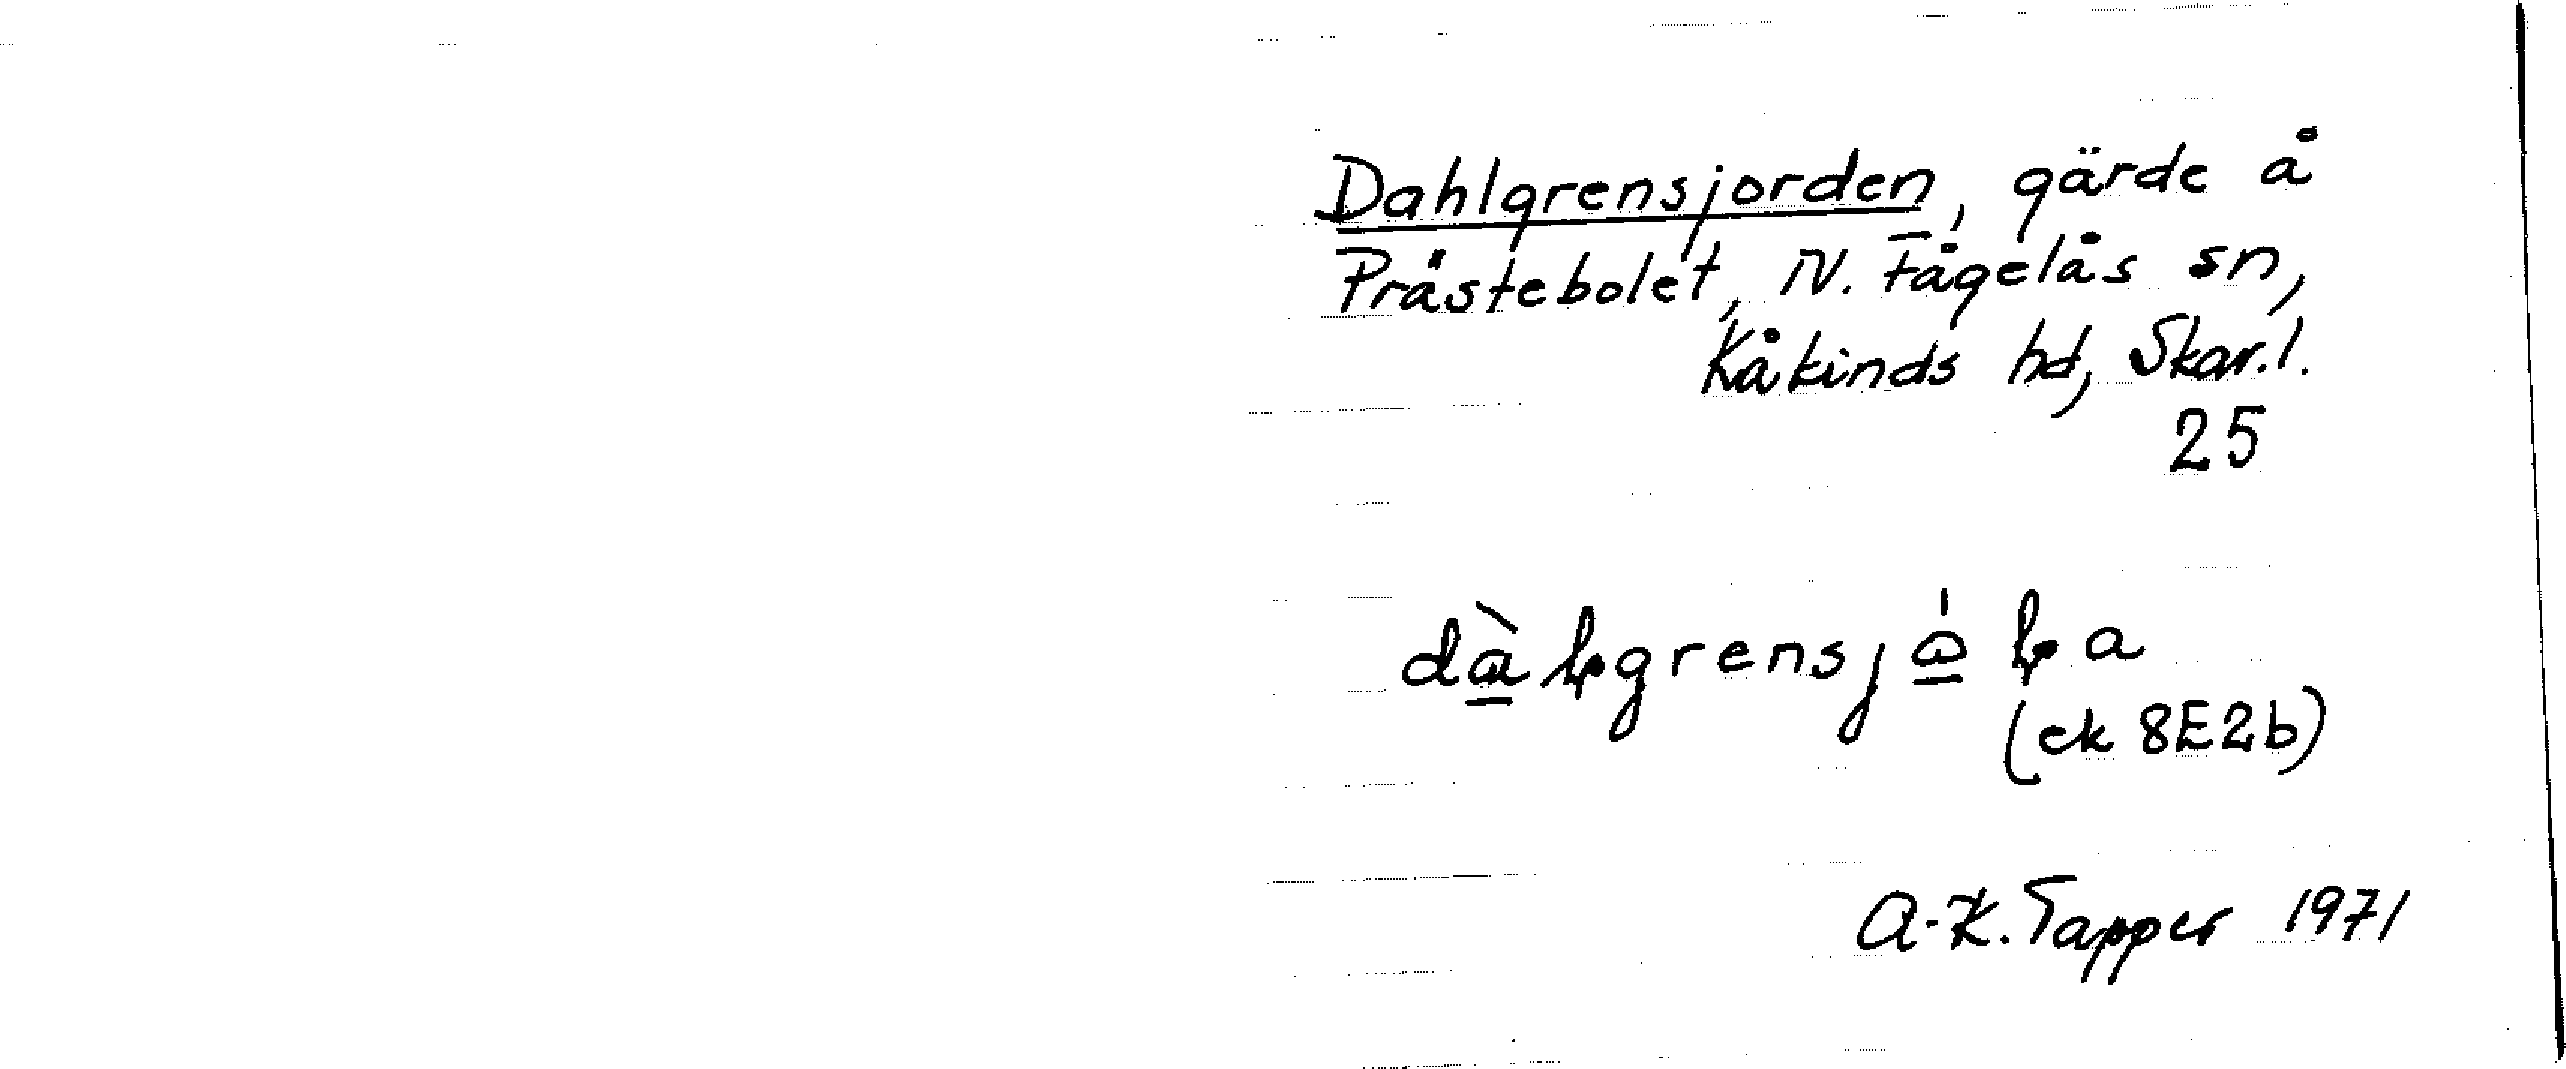 Dahlgrensjorden, gärde å
Prästebolet, N. Fågelås sn,
Kåkinds hd, Skar.l.
25
(ek 8E2b)
A-K. Tapper 1971